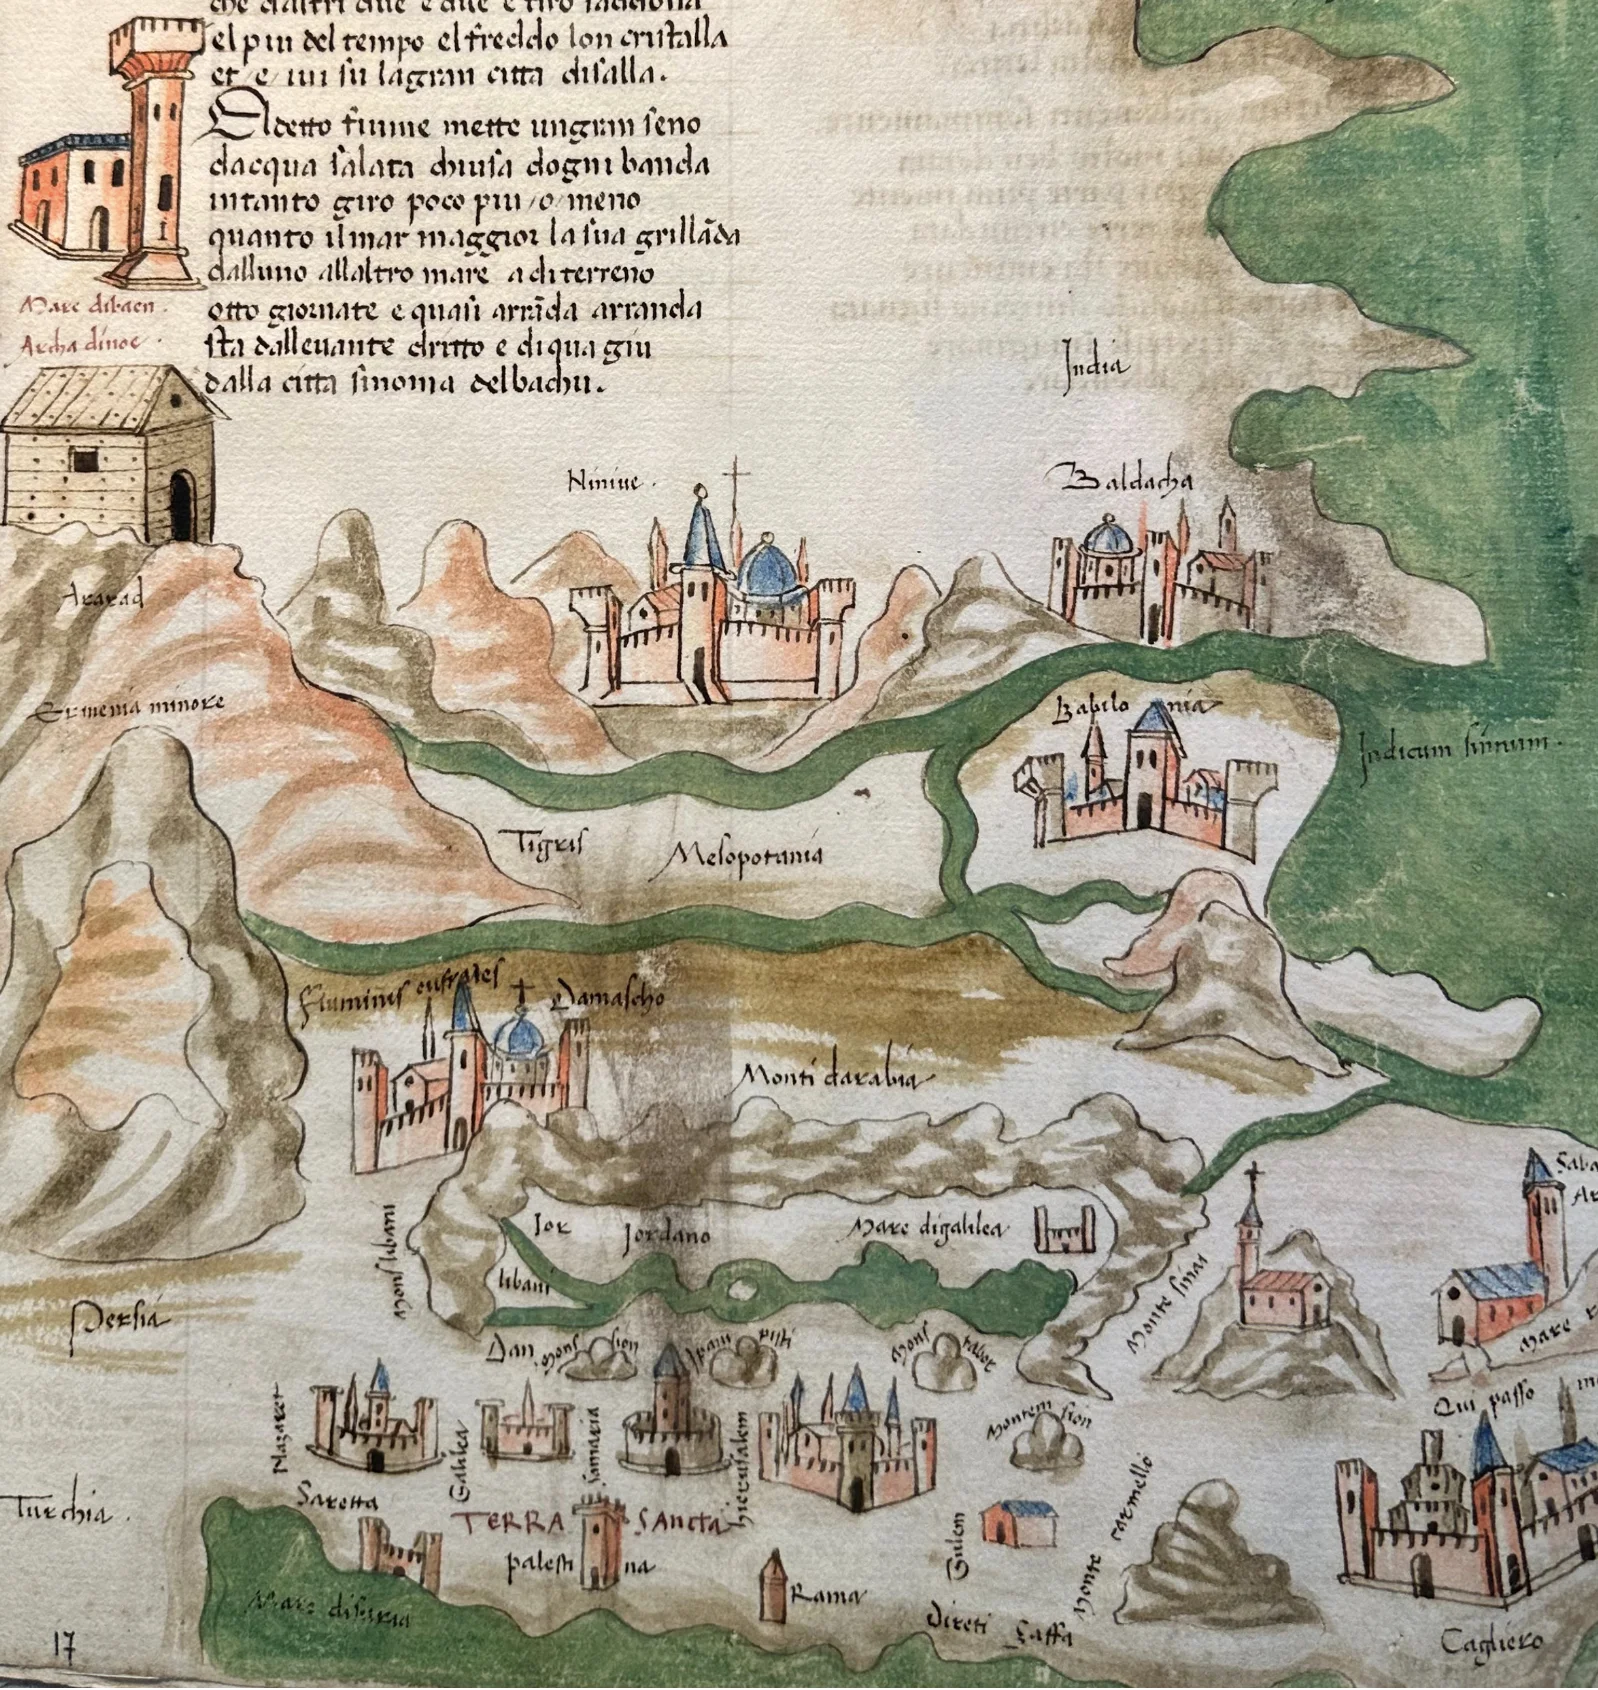 che daltri due e due e tiro
el piu del tempo el freddo lon cristalla
et e iui su lagran citta disalla.
Adetto fiume mette ungran seno
dacqua salata chiusa dogni banda
intanto giro poco piu /o/ meno
quanto il mar maggior la sua grillāda
dalluno allaltro mare a di terreno
otto giornate e quasi arrāda arranda
sta dalleuante dritto e di qua giu
dalla citta sinoma delbachu.
Mare dibacu.
Archa dinoe.
India
Niniue.
Baldacha
Ararad
Ermenia minore
Babilonia
Indicum sinum.
Tigris
Mesopotania
Fluminis eufrates
Damascho
Monti darabia
Mons libani
Jor
Jordano
Mare digalilea
libani
Dan
Monte sinai
Saba
Ar
Persia
Mons sion
Mons tabor
Mare r
Qui passo
Nazaret
Galilea
Samaria
hierusalem
Montem sion
Monte carmello
Turchia.
Saretta
TERRA SANcta
palestina
Rama
Direti
Mare disiria
17
Cagliero